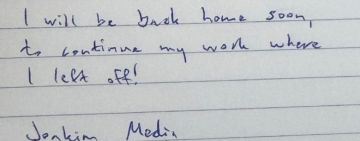 I will be back home soon,
to continue my work where
I left off!
Joakim Media